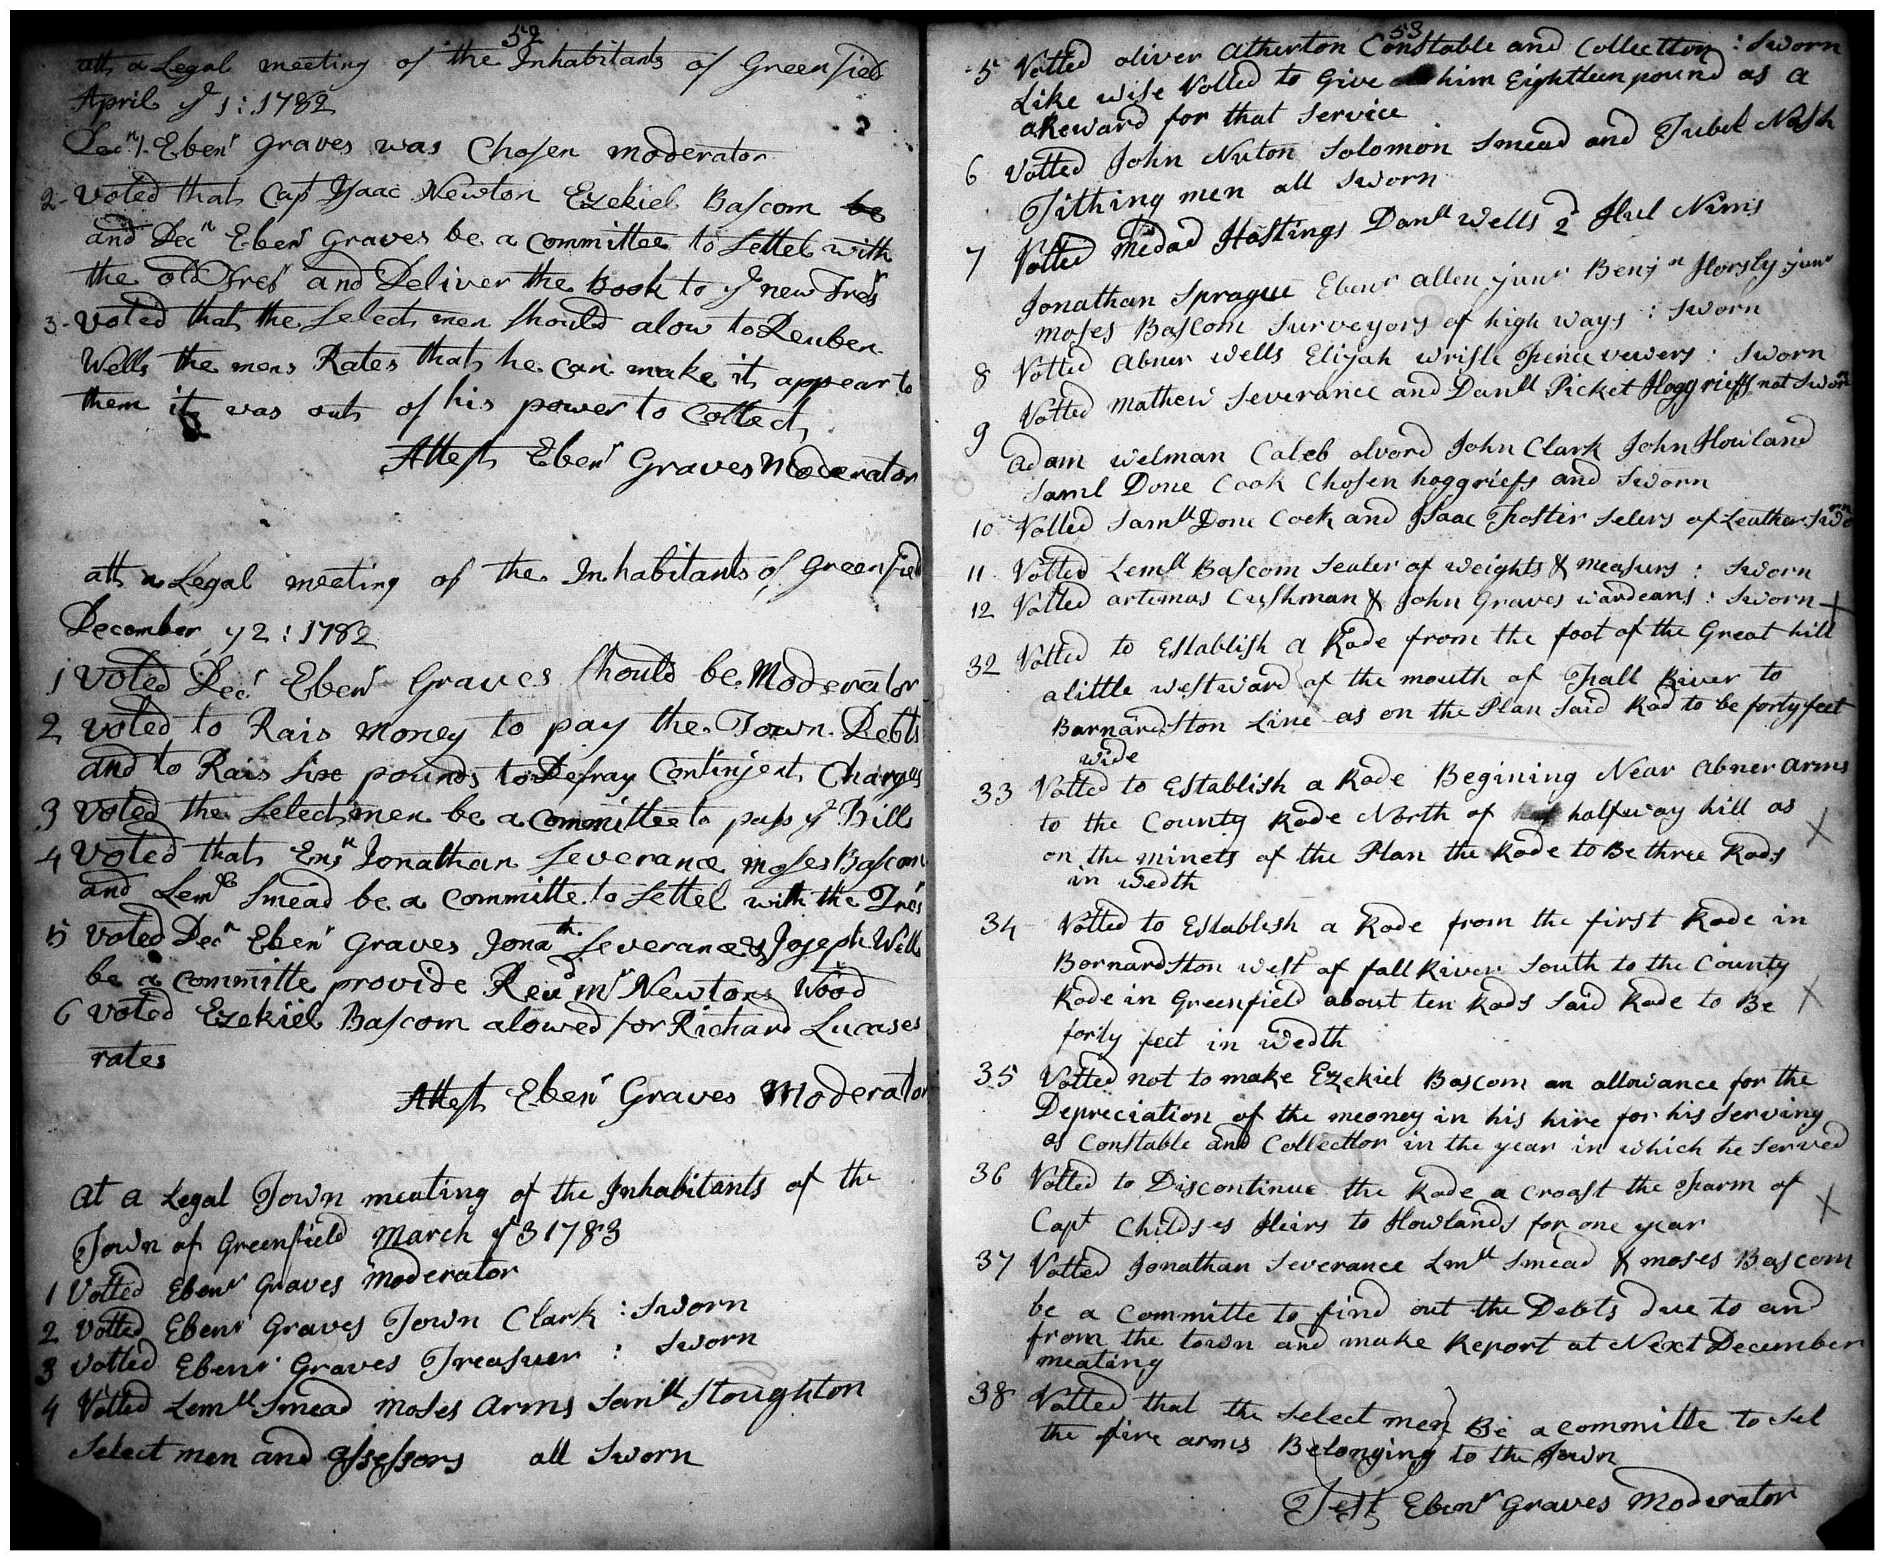 52
att a Legal meeting of the Inhabitants of Greenfield
April ye 1: 1782
Decn 1. Ebenr Graves was Chosen moderator
2- voted that Capt Isaac Newton Ezekiel Bascom be
and Decn Ebenr Graves be a committee to Settel with
the old Tresr and Deliver the Book to ye new Tresr
3- voted that the Select men should alow to Reuben
Wells the mens Rates that he can make it appear to
them it was out of his power to Collect
Attest Ebenr Graves Moderator
att a Legal meeting of the Inhabitants of Greenfield
December y 2: 1782
1 voted Decn Ebenr Graves should be Moderator
2 voted to Rais money to pay the Town Debts
and to Rais six pounds to Defray Continjent Charges
3 voted the Selectmen be a committee to pass ye Bills
4 voted that Ensn Jonathan Severance moses Bascom
and Lemll Smead be a committe to Settel with the Tresr
5 voted Decn Ebenr Graves Jonath Severance & Joseph Wells
be a committe provide Revd mr Newtons Wood
6 voted Ezekiel Bascom alowed for Richard Lucases
rates
Attest Ebenr Graves Moderator
at a Legal Town meating of the Inhabitants of the
Town of Greenfield March ye 3 1783
1 Votted Ebenr Graves Moderator
2 Votted Ebenr Graves Town Clark : Sworn
3 Votted Ebenr Graves Treasuer : Sworn
4 Votted Lemll Smead moses arms Samll Stoughton
Select men and assessors all Sworn
53
5 Votted oliver atherton Constable and Collecttor : Sworn
Like wise Votted to Give him Eighteen pound as a
aReward for that Service
6 Votted John Nuton Solomon Smead and Tubel Nash
Tithing men all Sworn
7 Votted Midad Hastings Danll Wells 2d Hul Nims
Jonathan Sprague Ebenr allen junr Benjn Horsly junr
moses Bascom Surveyors of high ways : Sworn
8 Votted abner wells Elijah wrisle Fence vewers : Sworn
9 Votted mathew Severance and Danll Picket Hoggrieffs not Sworn
adam welman Caleb alvord John Clark John Howland
Saml Done Cook Chosen hoggriefs and Sworn
10 Votted Samll Done Cook and Isaac Foster Selers of Leather Sworn
11 Votted Lemll Bascom Sealer of weights & measurs : Sworn
12 Votted artemas Cushman & John Graves wardeans : Sworn X
32 Votted to Establish a Rode from the foot of the Great hill
alittle westward of the mouth of Fall River to
Barnardston Line as on the Plan Said Rod to be forty feet
wide
33 Votted to Establish a Rode Begining Near abner arms
to the County Rode North of halfway hill as X
on the minets of the Plan the Rode to Be three Rods
in wedth
34 Votted to Establish a Rode from the first Rode in
Bornardston west of fall River South to the County
Rode in Greenfield about ten Rods Said Rode to Be X
forty feet in wedth
35 Votted not to make Ezekiel Bascom an allowance for the
Depreciation of the meoney in his hire for his Serving
as Constable and Collecttor in the year in which he Served
36 Votted to Discontinue the Rode a croast the Farm of X
Capt Childses Heirs to Howlands for one year
37 Votted Jonathan Severance Lmll Smead & moses Bascom
be a committe to find out the Debts due to and
from the town and make Report at Next December
meating
38 Votted that the Select men Be a committe to Sel
the fire arms Belonging to the Town
Test Ebenr Graves Moderator